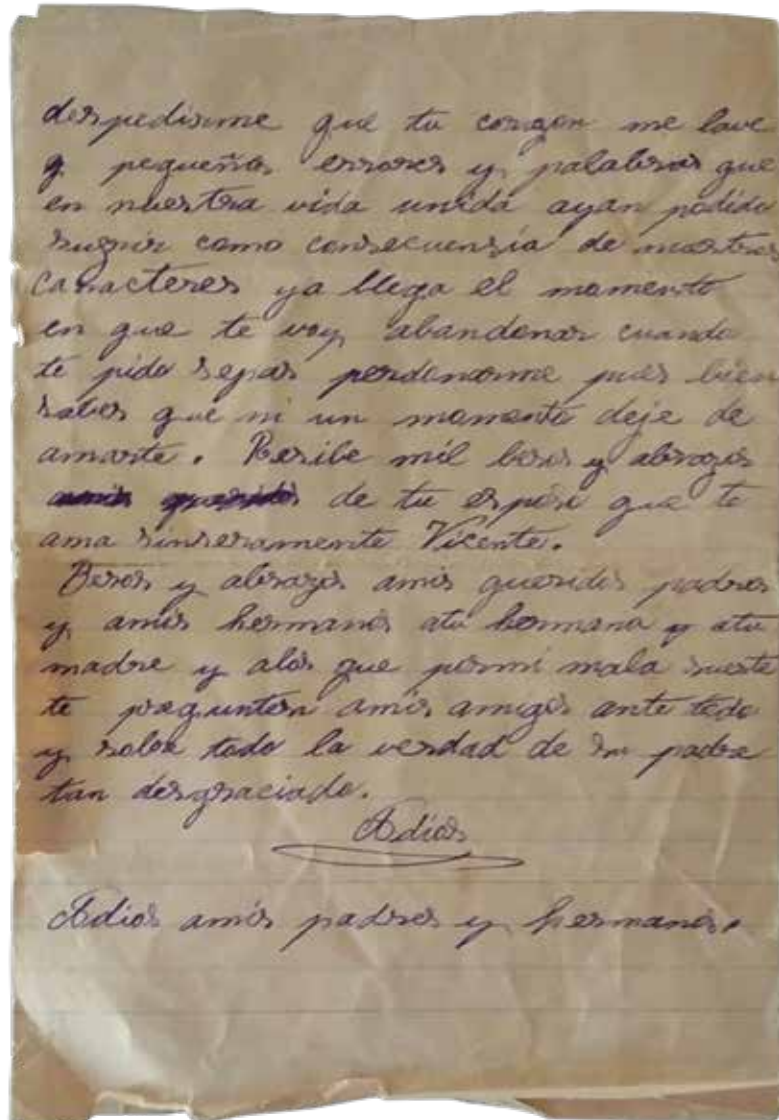 despedirme que tu corazon me lave
q pequeños errores y palabras que
en nuestra vida unida ayan podido
surgir como consecuensia de nuestros
caracteres ya llega el momento
en que te voy abandonar cuando
te pido sepas perdonarme pues bien
sabes que ni un momento deje de
amarte. Resibe mil besos y abrazos
amis queridos de tu esposo que te
ama sinseramente Vicente.
Besos y abrazos amis queridos padres
y amis hermanos atu hermana y atu
madre y alos que pormi mala suerte
te pregunten amis amigos ante todo
y sobre todo la verdad de su padre
tan desgraciado.
Adios
Adios amis padres y hermanos.